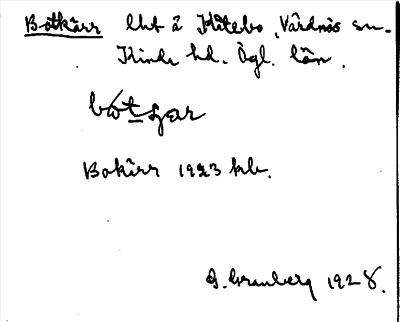 Botkärr lht å Kätebo, Vårdnäs sn.
Kinda hd. Ögl. län.
Bokärr 1923 krb.
G. Granberg 1928.